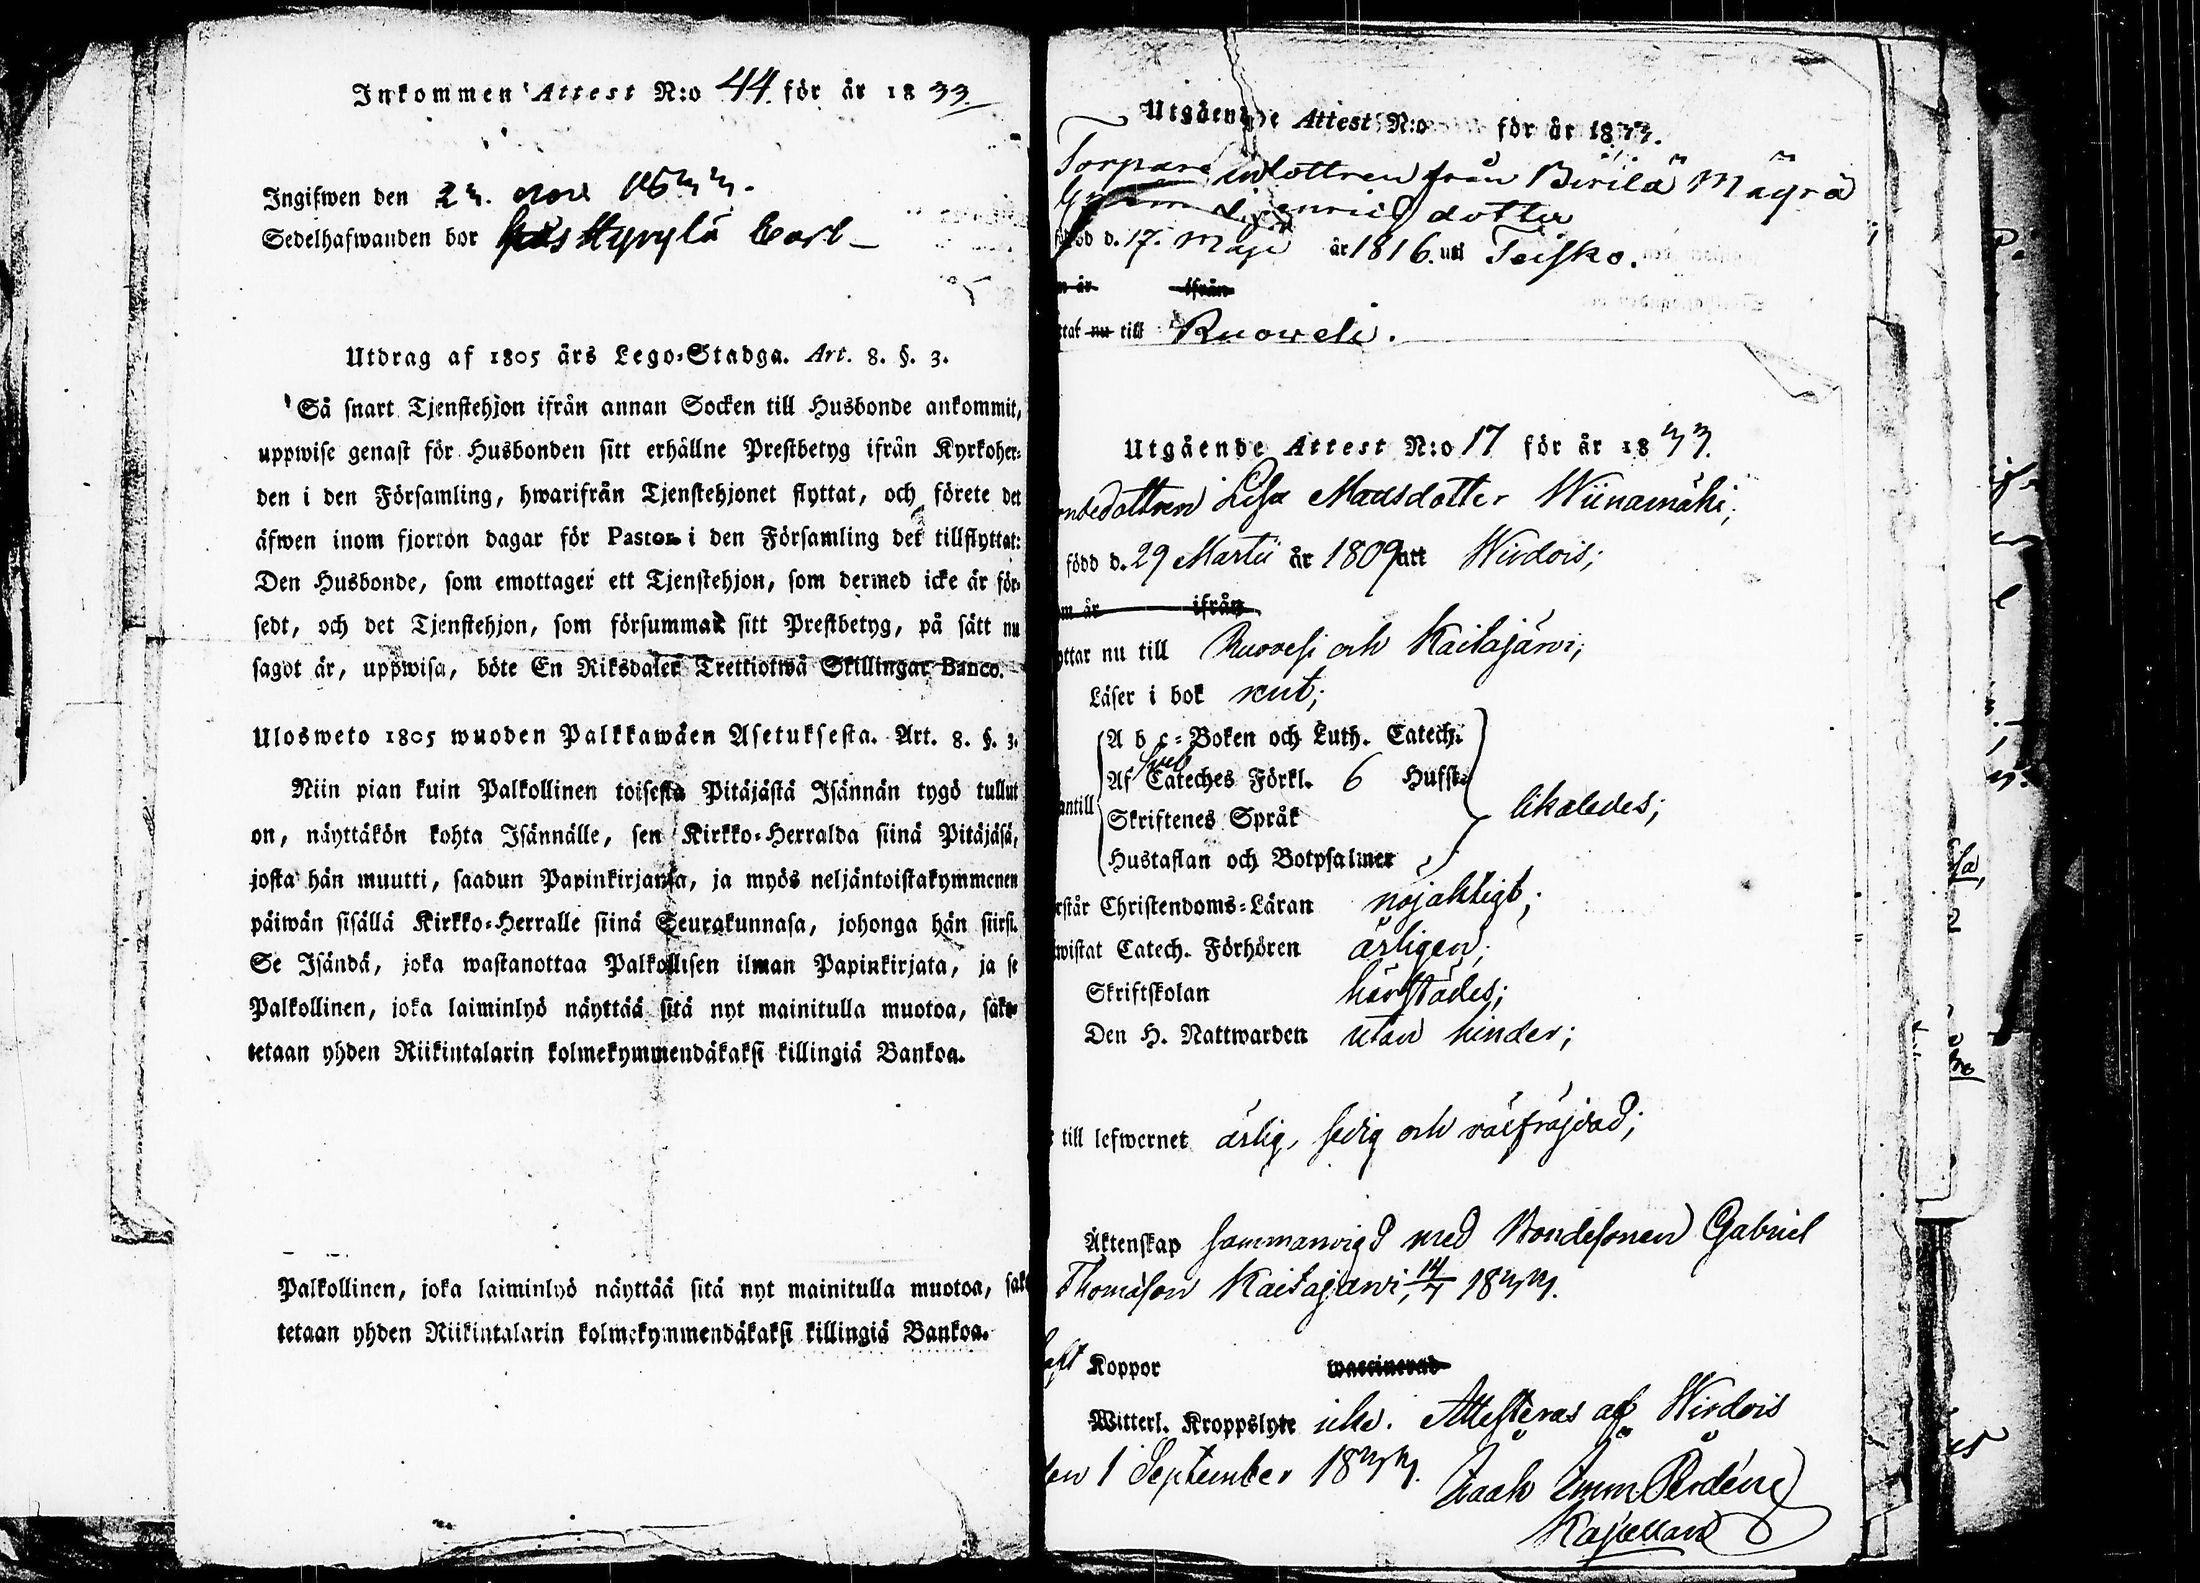 Inkommen Attest N:o 44. för år 1833.
Ingifwen den 23. Nov 1833.
Sedelhafwanden bor hos Hyrylä Carl
Utdrag af 1805 års Lego-Stadga. Art. 8. §. 3.
Så snart Tjenstehjon ifrån annan Socken till Husbonde ankommit,
uppwise genast för Husbonden sitt erhållne Prestbetyg ifrån Kyrkoher-
den i den Församling, hwarifrån Tjenstehjonet flyttat, och förete det
äfwen inom fjorton dagar för Pastor i den Församling det tillflyttat:
Den Husbonde, som emottager ett Tjenstehjon, som dermed icke är för-
sedt, och det Tjenstehjon, som försummar sitt Prestbetyg, på sätt nu
sagot är, uppwisa, böte En Riksdaler Trettiotwå Skillingar Banco.
Ulosweto 1805 wuoden Palkkawäen Asetuksesta. Art. 8. §. 3.
Niin pian kuin Palkollinen toisesta Pitäjästä Isännän tygö tullut
on, näyttäkön kohta Isännälle, sen Kirkko-Herralda siinä Pitäjäsä,
josta hän muutti, saadun Papinkirjansa, ja myös neljäntoistakymmenen
päiwän sisällä Kirkko-Herralle siinä Seurakunnasa, johonga hän siirsi.
Se Isändä, joka wastanottaa Palkollisen ilman Papinkirjata, ja se
Palkollinen, joka laiminlyö näyttää sitä nyt mainitulla muotoa, sako-
tetaan yhden Riikintalarin kolmekymmendäkaksi killingiä Bankoa.
Palkollinen, joka laiminlyö näyttää sitä nyt mainitulla muotoa, sak
tetaan yhden Riikintalarin kolmekymmendäkaksi killingiä Bankoa.
Utgående Attest N:o för år 1833.
Torpare dottren från Birilä Mäyrä
Henrics dotter
född d. 17. Maji år 1816. uti Teisko.
m år ifrån
ttat nu till Ruowesi.
Utgående Attest N:o 17 för år 1833.
ndedottren Lisa Mattsdotter Wiinamäki;
född d. 29 Martii år 1809 att Wirdois;
m år ifrån
yttar nu till Ruovesi och Kaitajärvi;
Läser i bok rent;
A b c-Boken och Luth. Catech.
Af Sveb Cateches Förkl. 6 Hufst.
antill Skriftenes Språk likaledes;
Hustaflan och Botpsalmer
rstår Christendoms-Läran nöjaktigt;
wistat Catech. Förhören årligen;
Skriftskolan härstädes;
Den H. Nattwarden utan hinder;
till lefwernet ärlig, sedig och välfräjdad;
Äktenskap sammanvigd med Bondesonen Gabriel
Thomasson Kaitajärvi, 14/7 1833.
haft Koppor waccinerad
Witterl. Kroppslyte icke. Attesteras af Wirdois
den 1 September 1833. Isaak Imm.
Kapellan